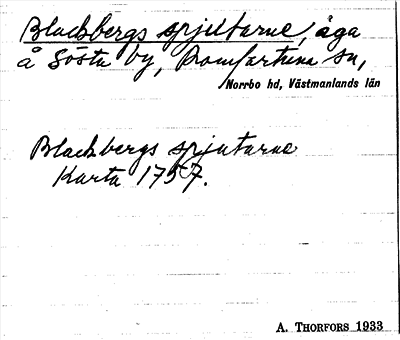 Blackbergs spjutarne, åga
å Sösta by, Romfartuna sn,
Norrbo hd, Västmanlands län
Blackbergs spjutarne
Karta 1757.
A. THORFORS 1933